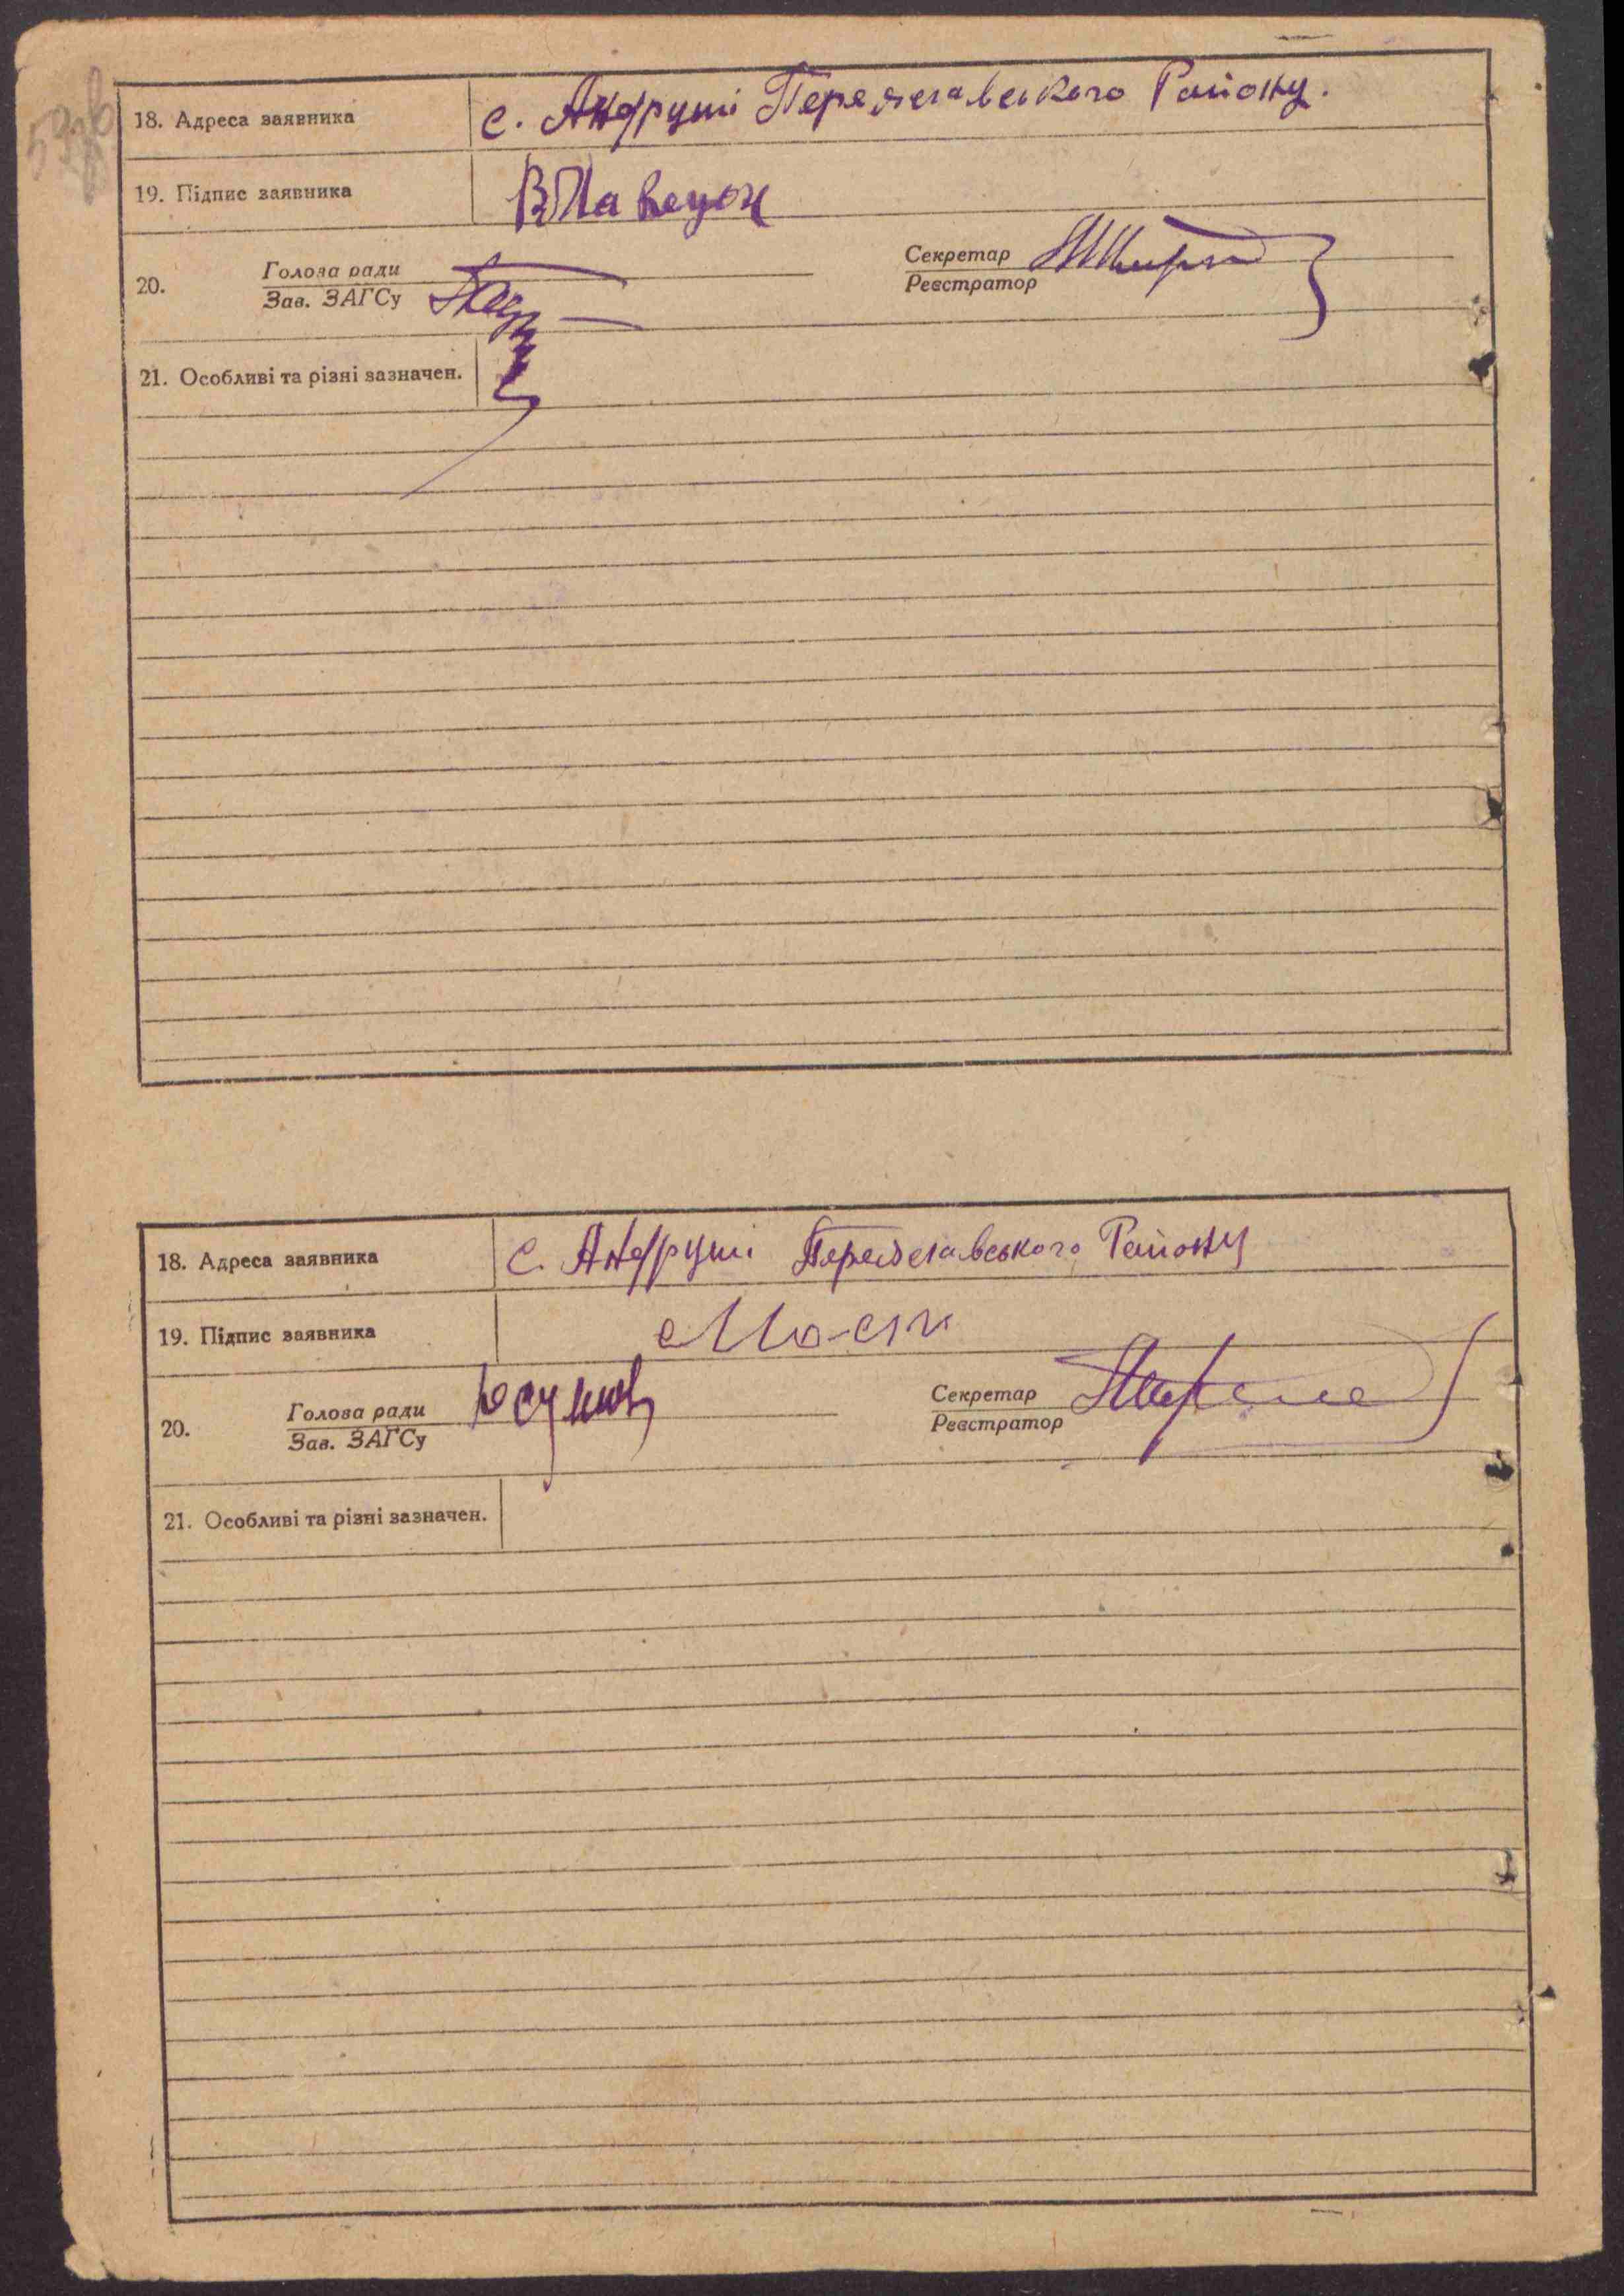 18. Адреса заявника с. Андруші Переяславського Району.
19. Підпис заявника
20. Голова ради Секретар
Зав. ЗАГСу Реєстратор
21. Особливі та різні зазначен.
18. Адреса заявника с. Андруші Переяславського Району
19. Підпис заявника
20. Голова ради Секретар
Зав. ЗАГСу Реєстратор
21. Особливі та різні зазначен.